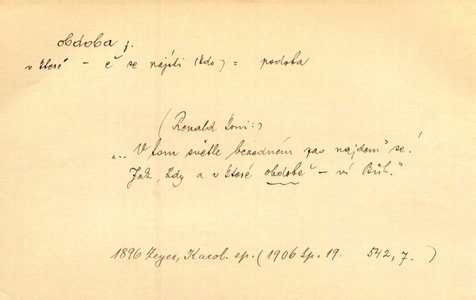 obdoba f.
v které - ě se nájíti (kdo) = podoba
(Renald Joni:)
„.. V tom světle bezedném zas najdem' se!
Jak, kdy a v které obdobě - ví Bůh."
1896 Zeyer, Karol. ep. (1906 Sp. 19. 542, 7. )